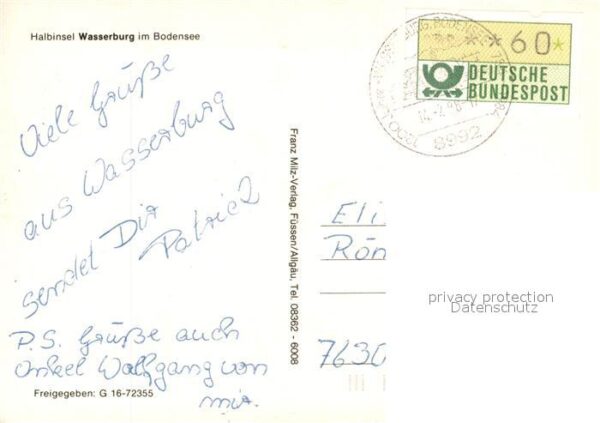 Halbinsel Wasserburg im Bodensee
Viele Grüße
aus Wasserburg
sendet Dir
Patrick
P.S. Grüße auch
Onkel Wolfgang von
mir.
Freigegeben: G 16-72355
Franz Milz-Verlag, Füssen/Allgäu, Tel. 08362 - 6008
**60*
DEUTSCHE
BUNDESPOST
8992
Eli
Rön
7630
privacy protection
Datenschutz